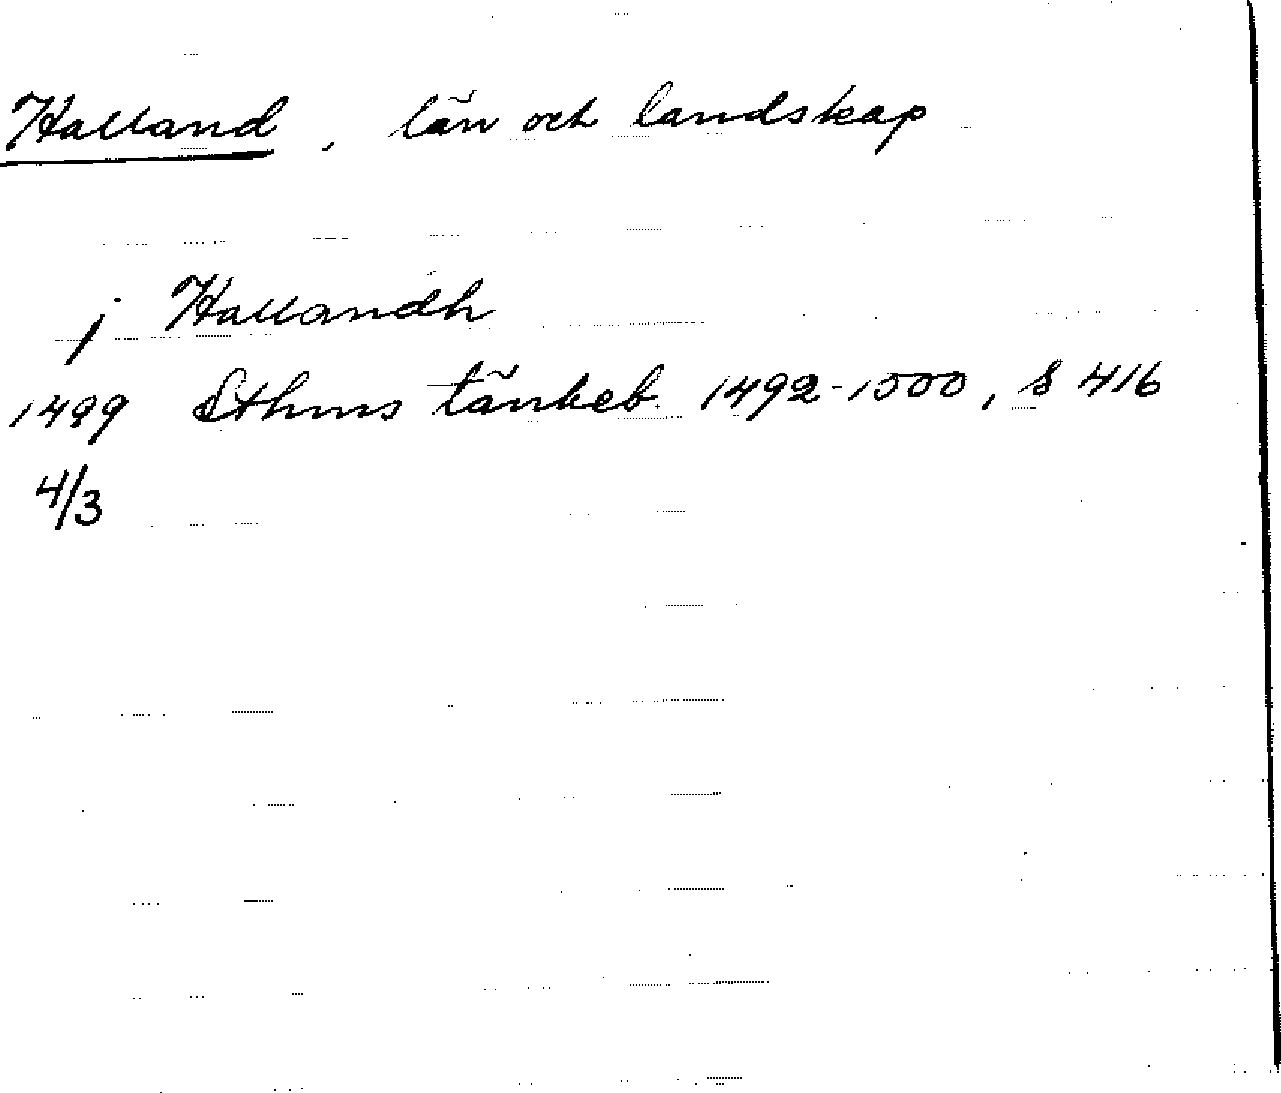 Halland, län och landskap
j Hallandh
1499 Sthms tänkeb 1492-1500, s 416
4/3